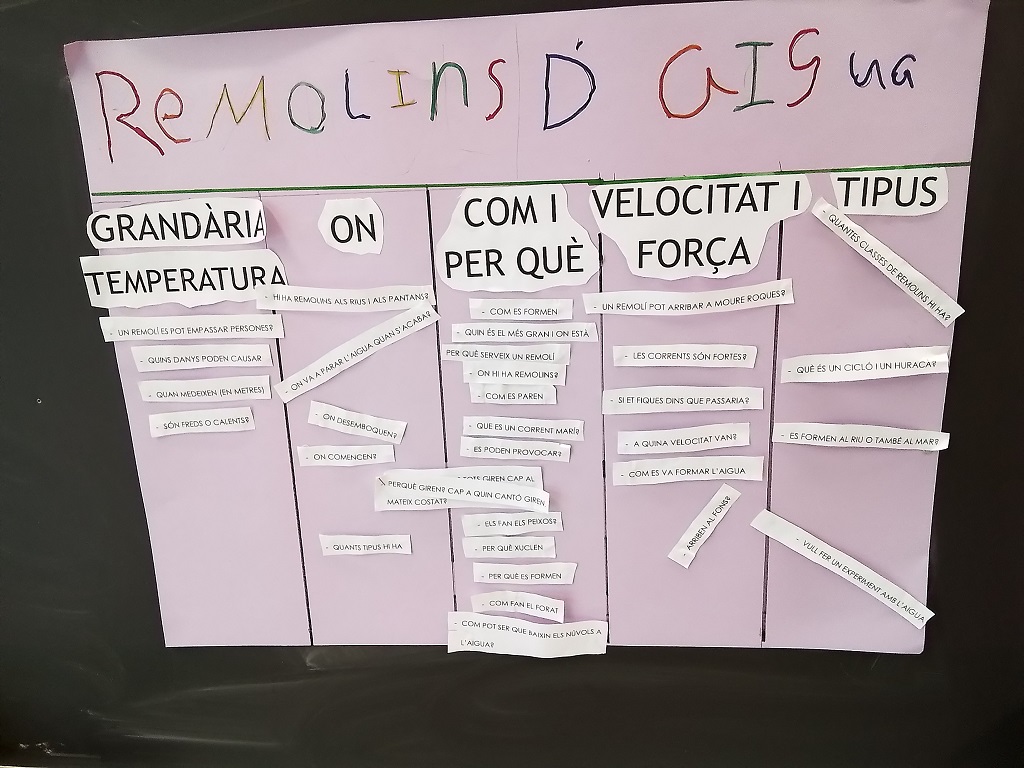 ReMOLINS D' AIGua
GRANDÀRIA
TEMPERATURA
- UN REMOLÍ ES POT EMPASSAR PERSONES?
- QUINS DANYS PODEN CAUSAR
- QUAN MEDEIXEN (EN METRES)
- SÓN FREDS O CALENTS?
ON
- HI HA REMOLINS ALS RIUS I ALS PANTANS?
- ON VA A PARAR L'AIGUA QUAN S'ACABA?
- ON DESEMBOQUEN?
- ON COMENCEN?
- QUANTS TIPUS HI HA
COM I
PER QUÈ
- COM ES FORMEN
- QUIN ÉS EL MÉS GRAN I ON ESTÀ
PER QUÈ SERVEIX UN REMOLÍ
- ON HI HA REMOLINS?
- COM ES PAREN
- QUE ES UN CORRENT MARÍ?
- ES PODEN PROVOCAR?
TOTS GIREN CAP AL
PERQUÈ GIREN? CAP A QUIN CANTÓ GIREN
MATEIX COSTAT?
- ELS FAN ELS PEIXOS?
- PER QUÈ XUCLEN
- PER QUÈ ES FORMEN
- COM FAN EL FORAT
- COM POT SER QUE BAIXIN ELS NÚVOLS A
L'AIGUA?
VELOCITAT I
FORÇA
- UN REMOLÍ POT ARRIBAR A MOURE ROQUES?
- LES CORRENTS SÓN FORTES?
- SI ET FIQUES DINS QUE PASSARIA?
- A QUINA VELOCITAT VAN?
- COM ES VA FORMAR L'AIGUA
- ARRIBEN AL FONS?
TIPUS
- QUANTES CLASSES DE REMOLINS HI HA?
- QUÈ ÉS UN CICLÓ I UN HURACA?
- ES FORMEN AL RIU O TAMBÉ AL MAR?
- VULL FER UN EXPERIMENT AMB L'AIGUA